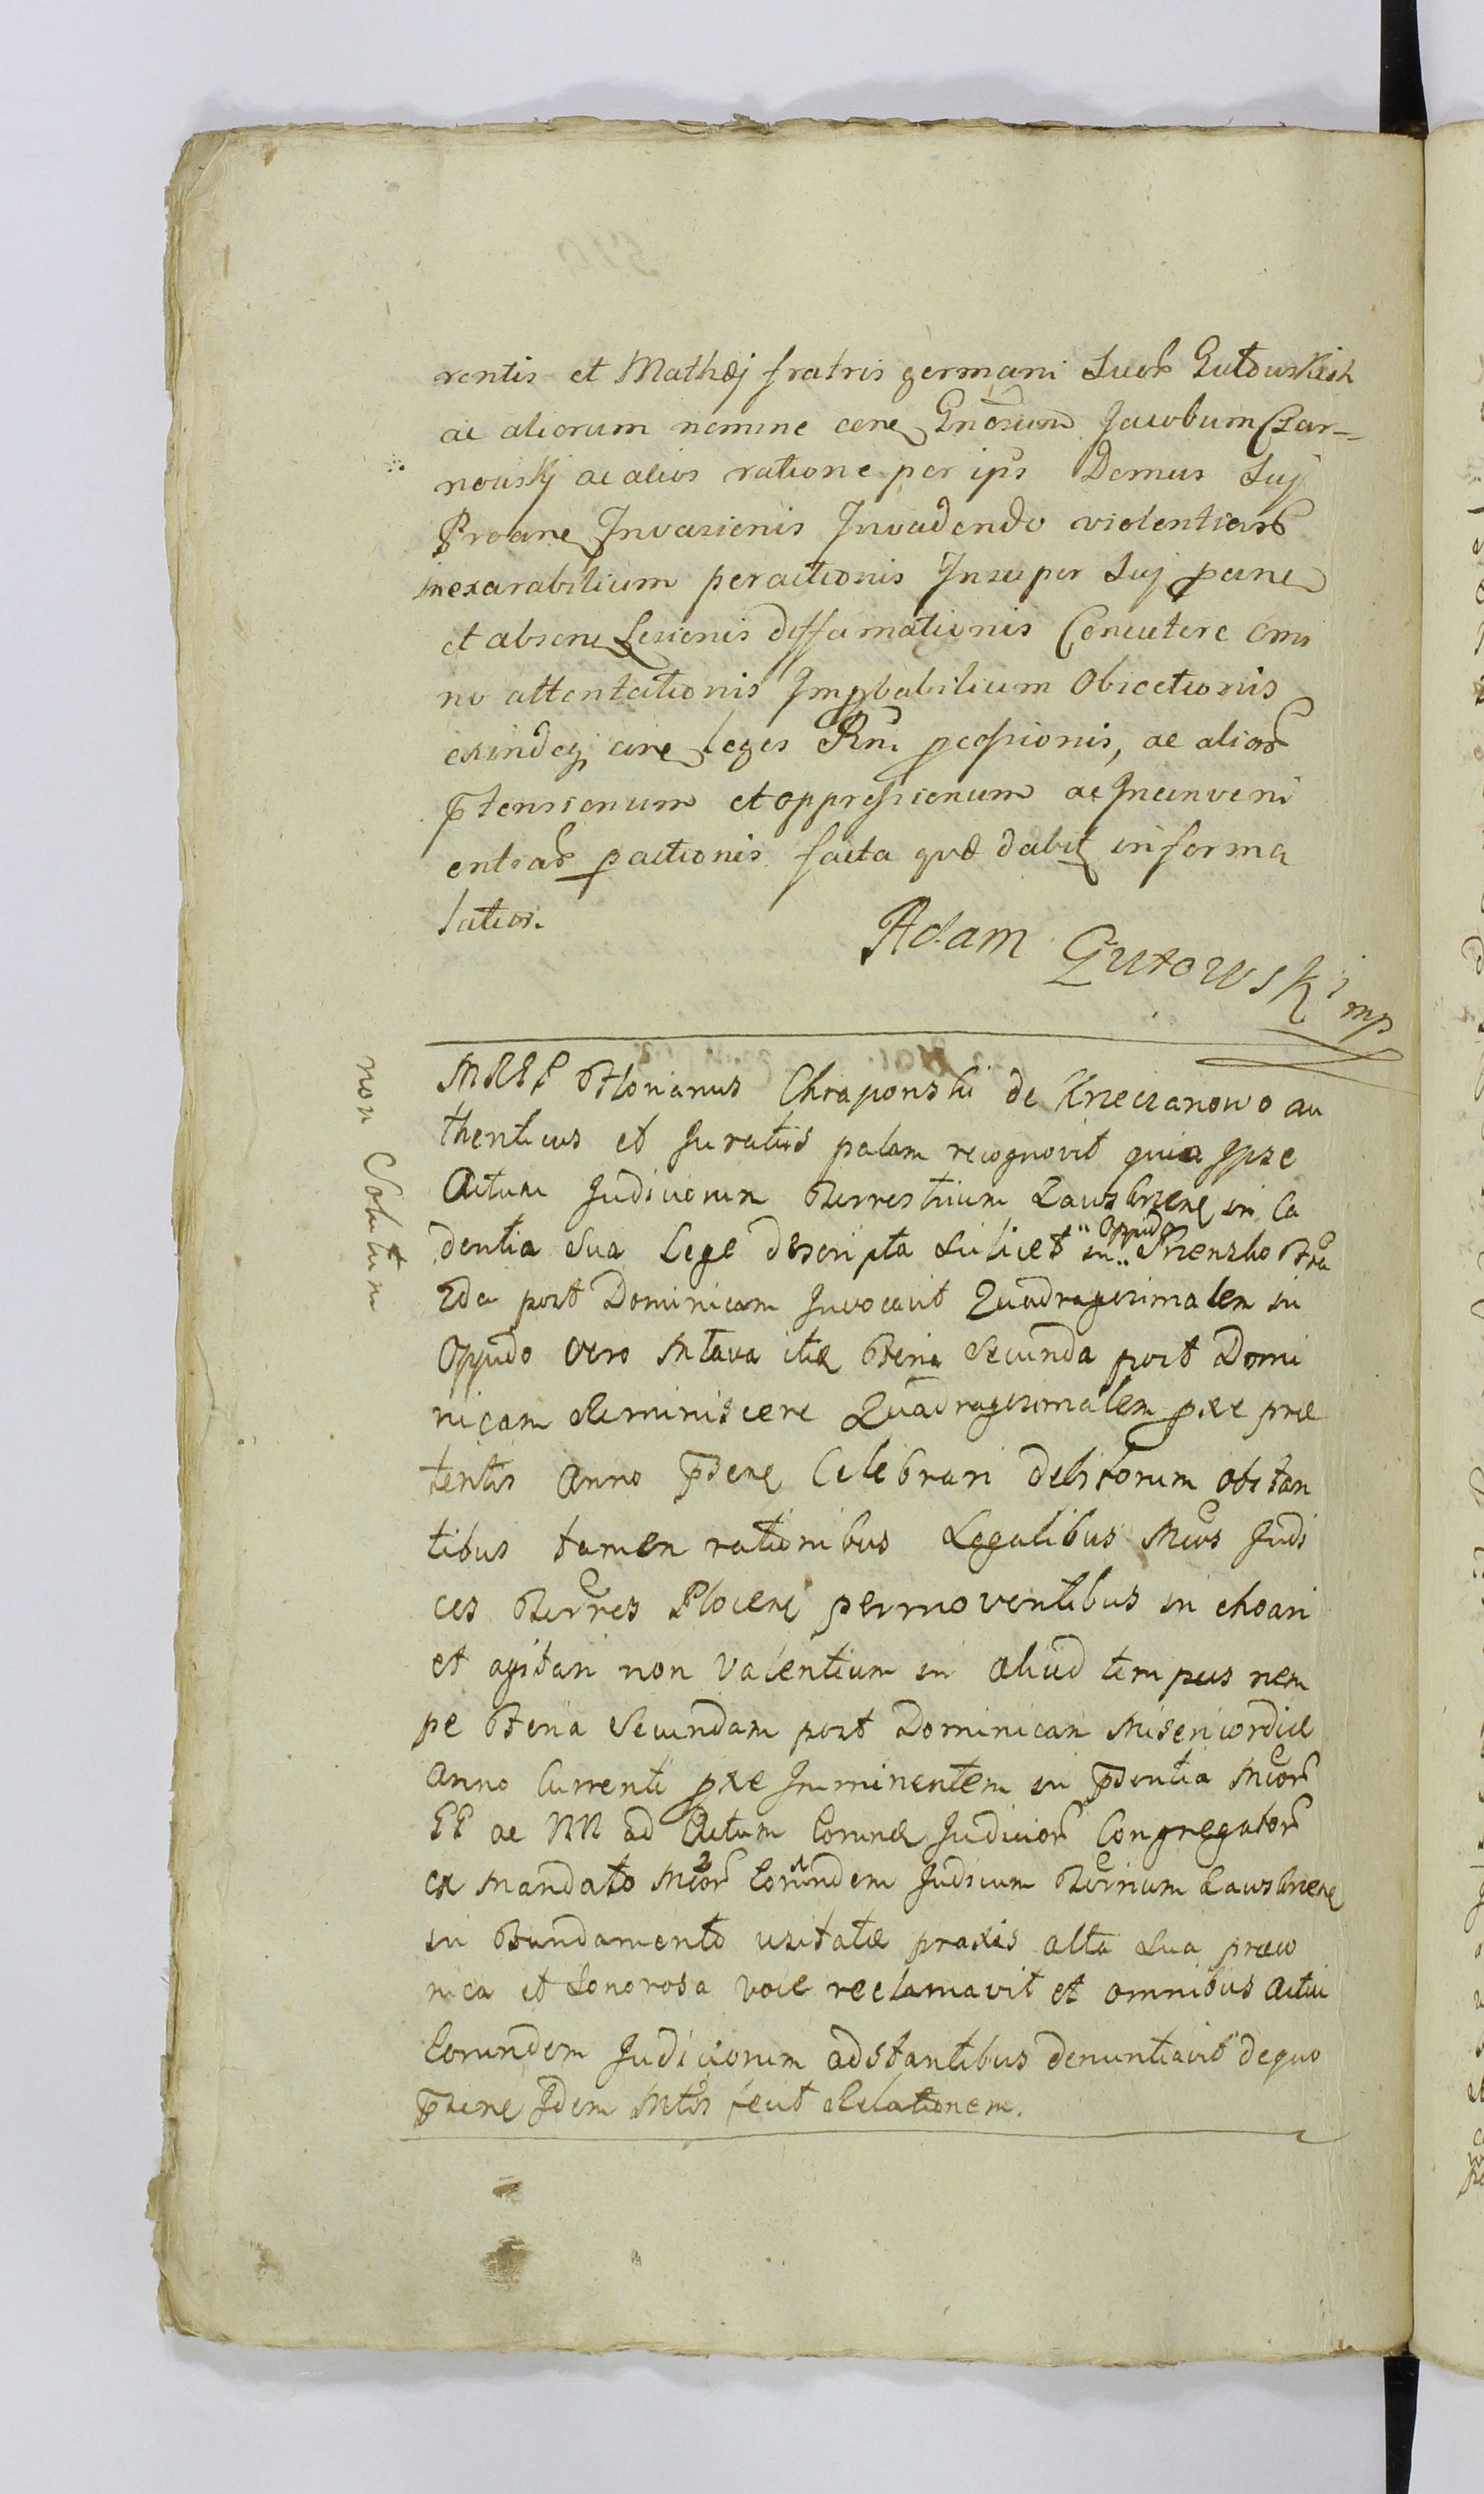 rentis et Mathæj fratris germani Suor Gutowskich
ac aliorum nomine cone Gnosum Jacobum Czar-
nowskj ac alios ratione per ipš Domus Suj
Invasionis Invadendo violentiar
inexarabilium peractionis Insuper Suj
et absone Lesionis deffamationis Concutere omi
no attentationis Improbabilium Obiectionis
exindeq cone leges Rni pcessionis, ac alior
ptensionum et oppressionum ac Inconveni
entiar pactionis facta quæ dabit informa
latior.
Adam Gutowski mp
non Solutum
MRGS Florianus Chraponski de Krzeczanowo au
thenticus et Juratus palam recognovit quia Ipse
Actum Judiciorum Terrestrium Zawskrzene in Ca
dentia Sua Lege descripta Scilicet in Oppido Srzensko Fra
2da post Dominicam Invocavit Quadragesimalem in
Oppido vero Mlava itidé Feria Secunda post Domi
nicam Reminiscere Quadragesimalem pxe præ
teritis Anno psene Celebrari debitorum obstan
tibus tamen rationibus Legalibus Mcos Judi
ces Terres Plocene permoventibus in choari
et agitari non Valentium in aliud tempus nem
pe Feria Secundam post Dominicam Misericordiæ
Anno Currenti pxe Imminentem in psentia Mcor
GG ac NN ad Actum Eorund Judicior Congregator
ex Mandato Mcor Eorundem Judicum Terrium Zawskrzene
in Fundamento usitatæ praxis alta Sua præco
nica et Sonorosa voce reclamavit et omnibus Actui
Eorundem Judiciorum adstantibus denuntiavit de quo
psene Idem Mtlis fecit Relationem.